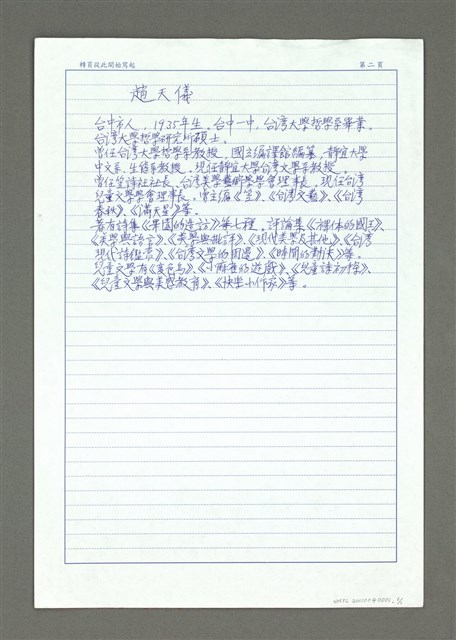 轉頁從此開始寫起
第二頁
趙天儀
台中市人，1935年生，台中一中，台湾大學哲學系畢業。
台湾大學哲學研究所碩士。
曾任台湾大學哲學系教授，國立編譯館編纂，靜宜大學
中文系、生態系教授。現任靜宜大學台湾文學系教授。
曾任笠詩社社長，台湾美學藝術學學會理事長，現任台湾
兒童文學學會理事長。曾主編《笠》、《台湾文藝》、《台湾
春秋》、《滿天星》等。
著有詩集《果園的造訪》等七種。評論集《裸体的國王》、
《美學與語言》、《美學與批評》、《現代美學及其他》、《台湾
現代詩鑑賞》、《台湾文學的周邊》、《時間的對決》等。
兒童文學有《變色鳥》、《小麻雀的遊戲》、《兒童詩初探》、
《兒童文學與美感教育》、《快樂小作家》等。